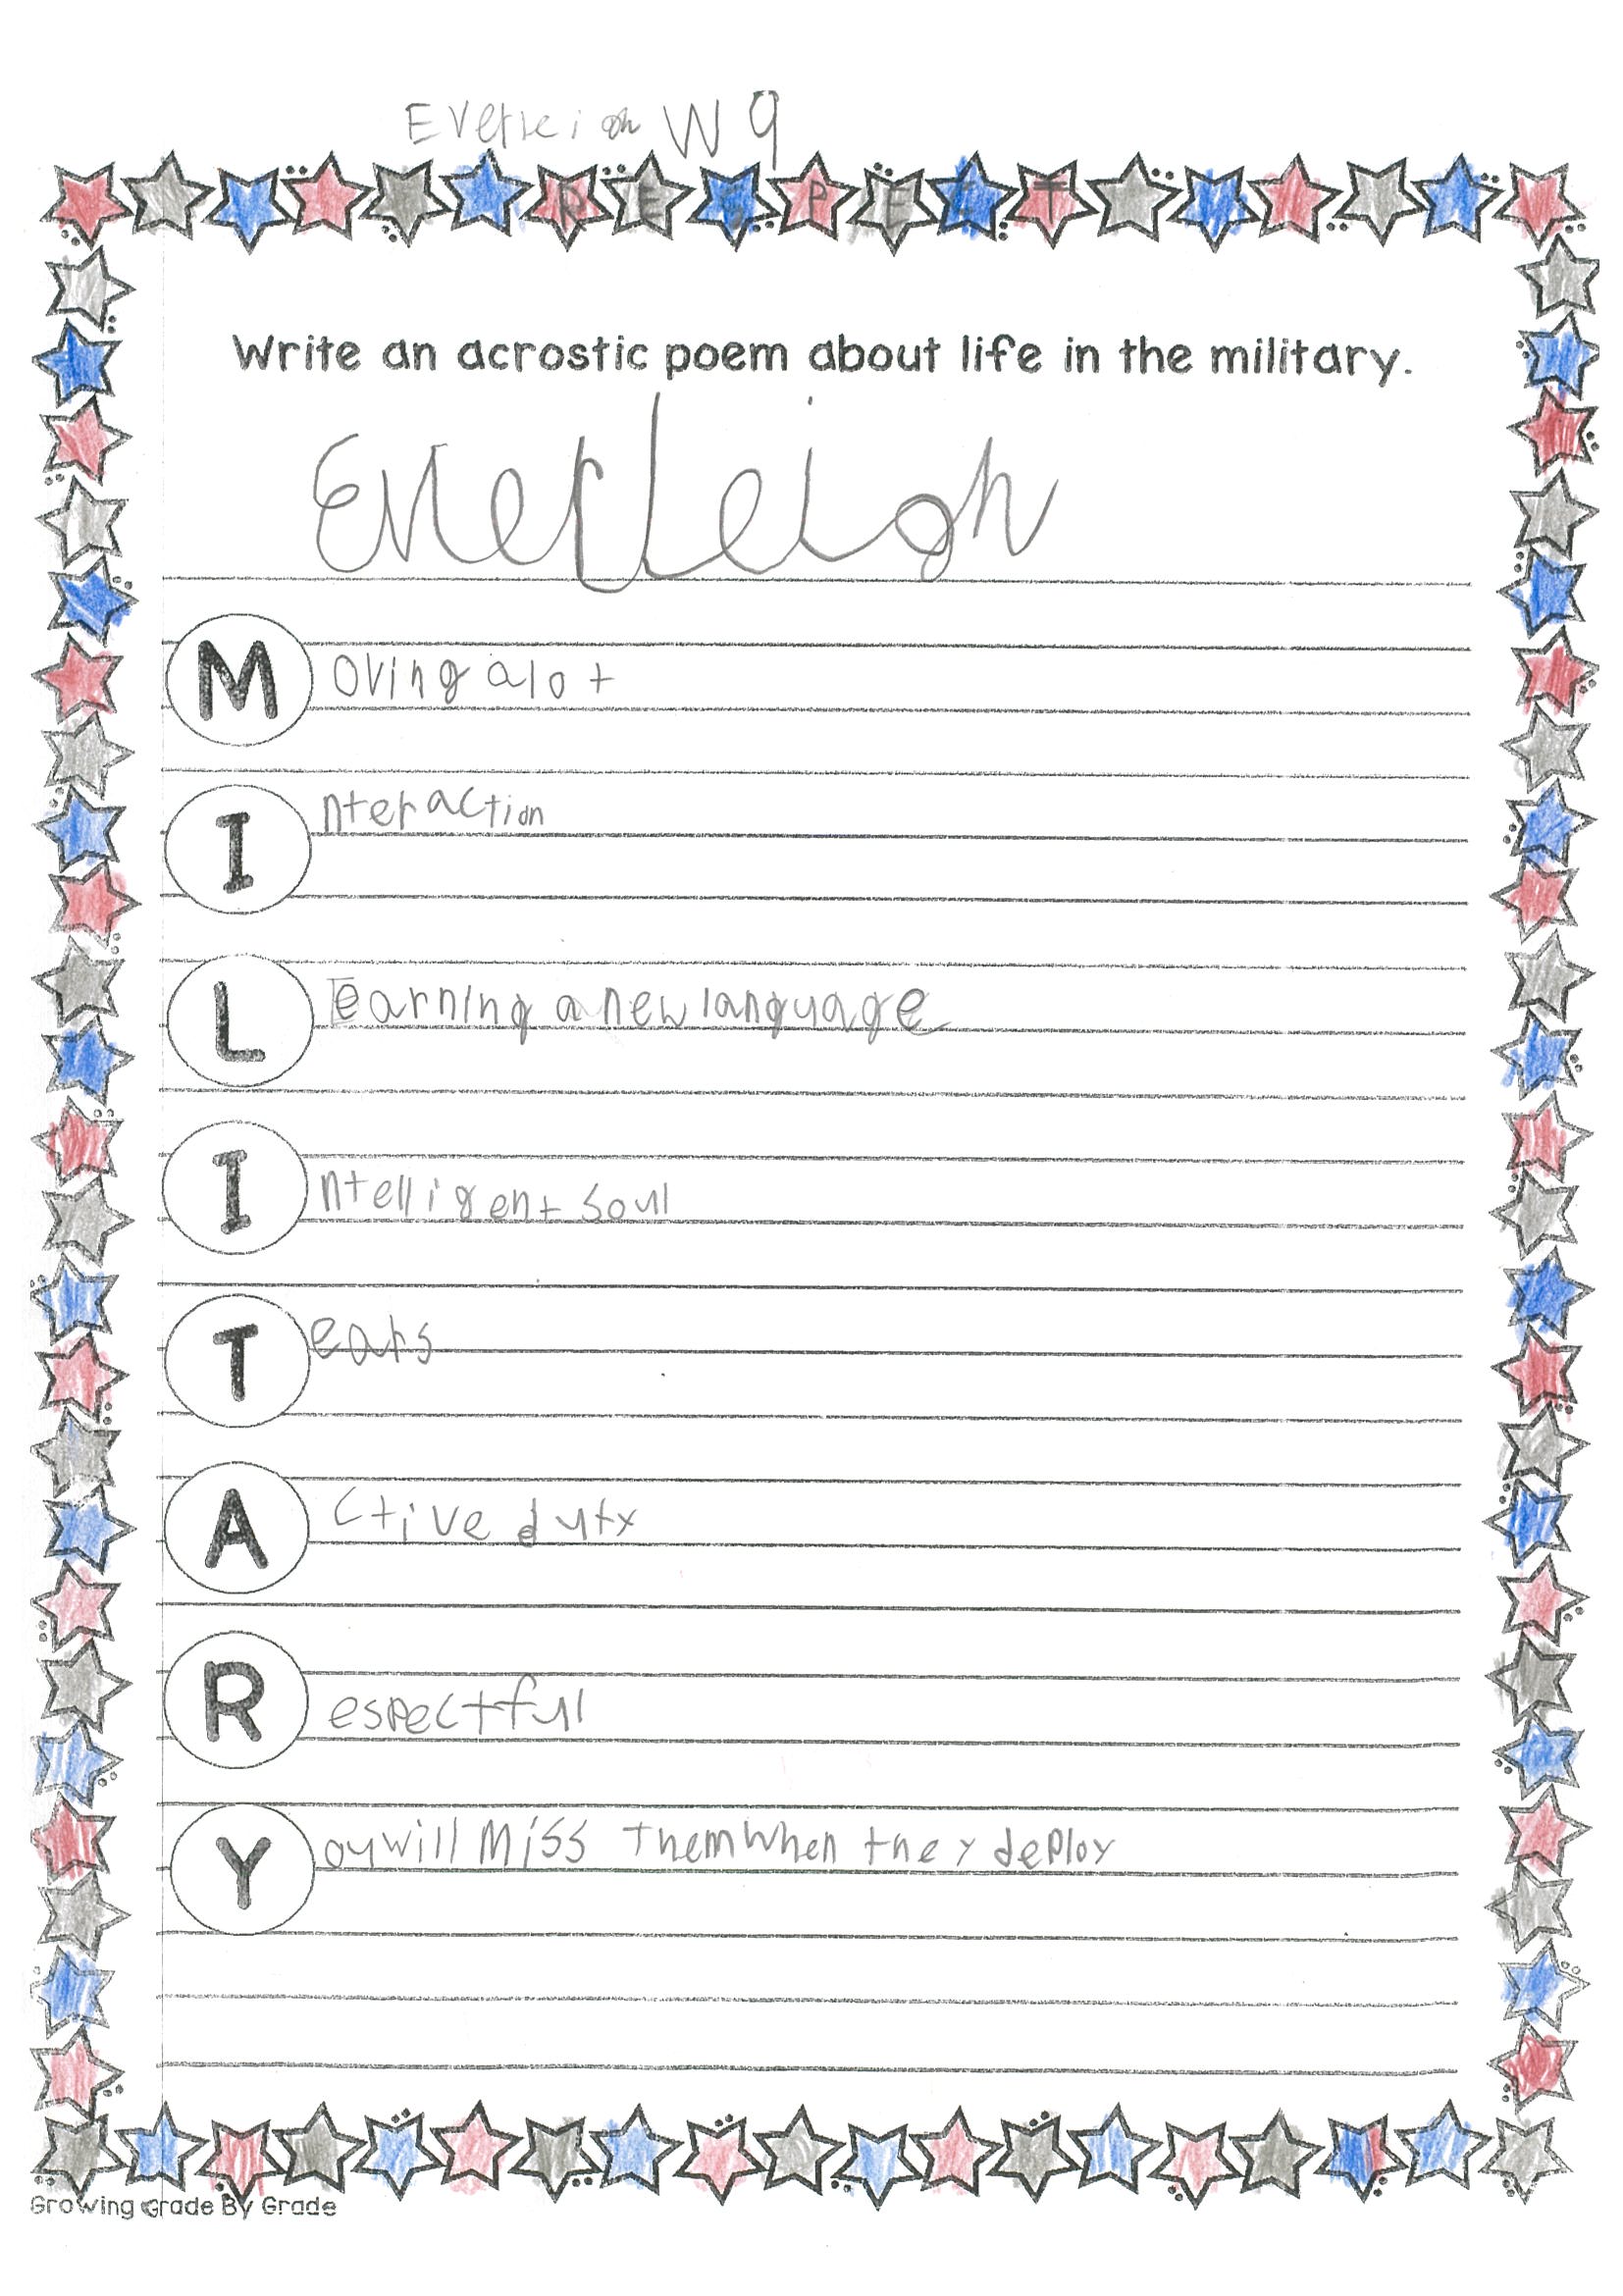 Everleigh W 9
RESPECT
Write an acrostic poem about life in the military.
Everleigh
Moving alot
Interaction
Learning a new language
Intelligent soul
Tears
Active duty
Respectful
You will miss them when they deploy
Growing Grade By Grade